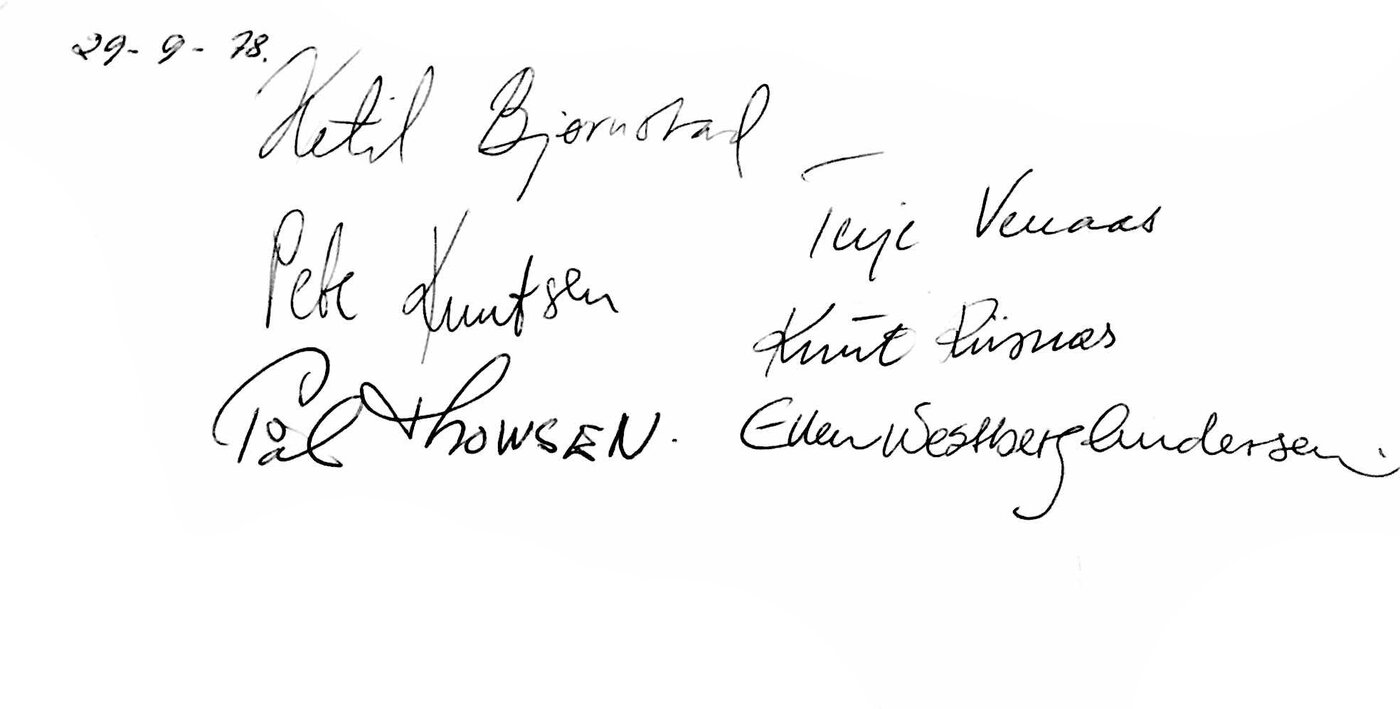 29-9-78.
Ketil Bjørnstad
Terje Venaas
Pete Knutsen
Knut Riisnæs
Pål Thowsen.
Ellen Westberg Andersen.